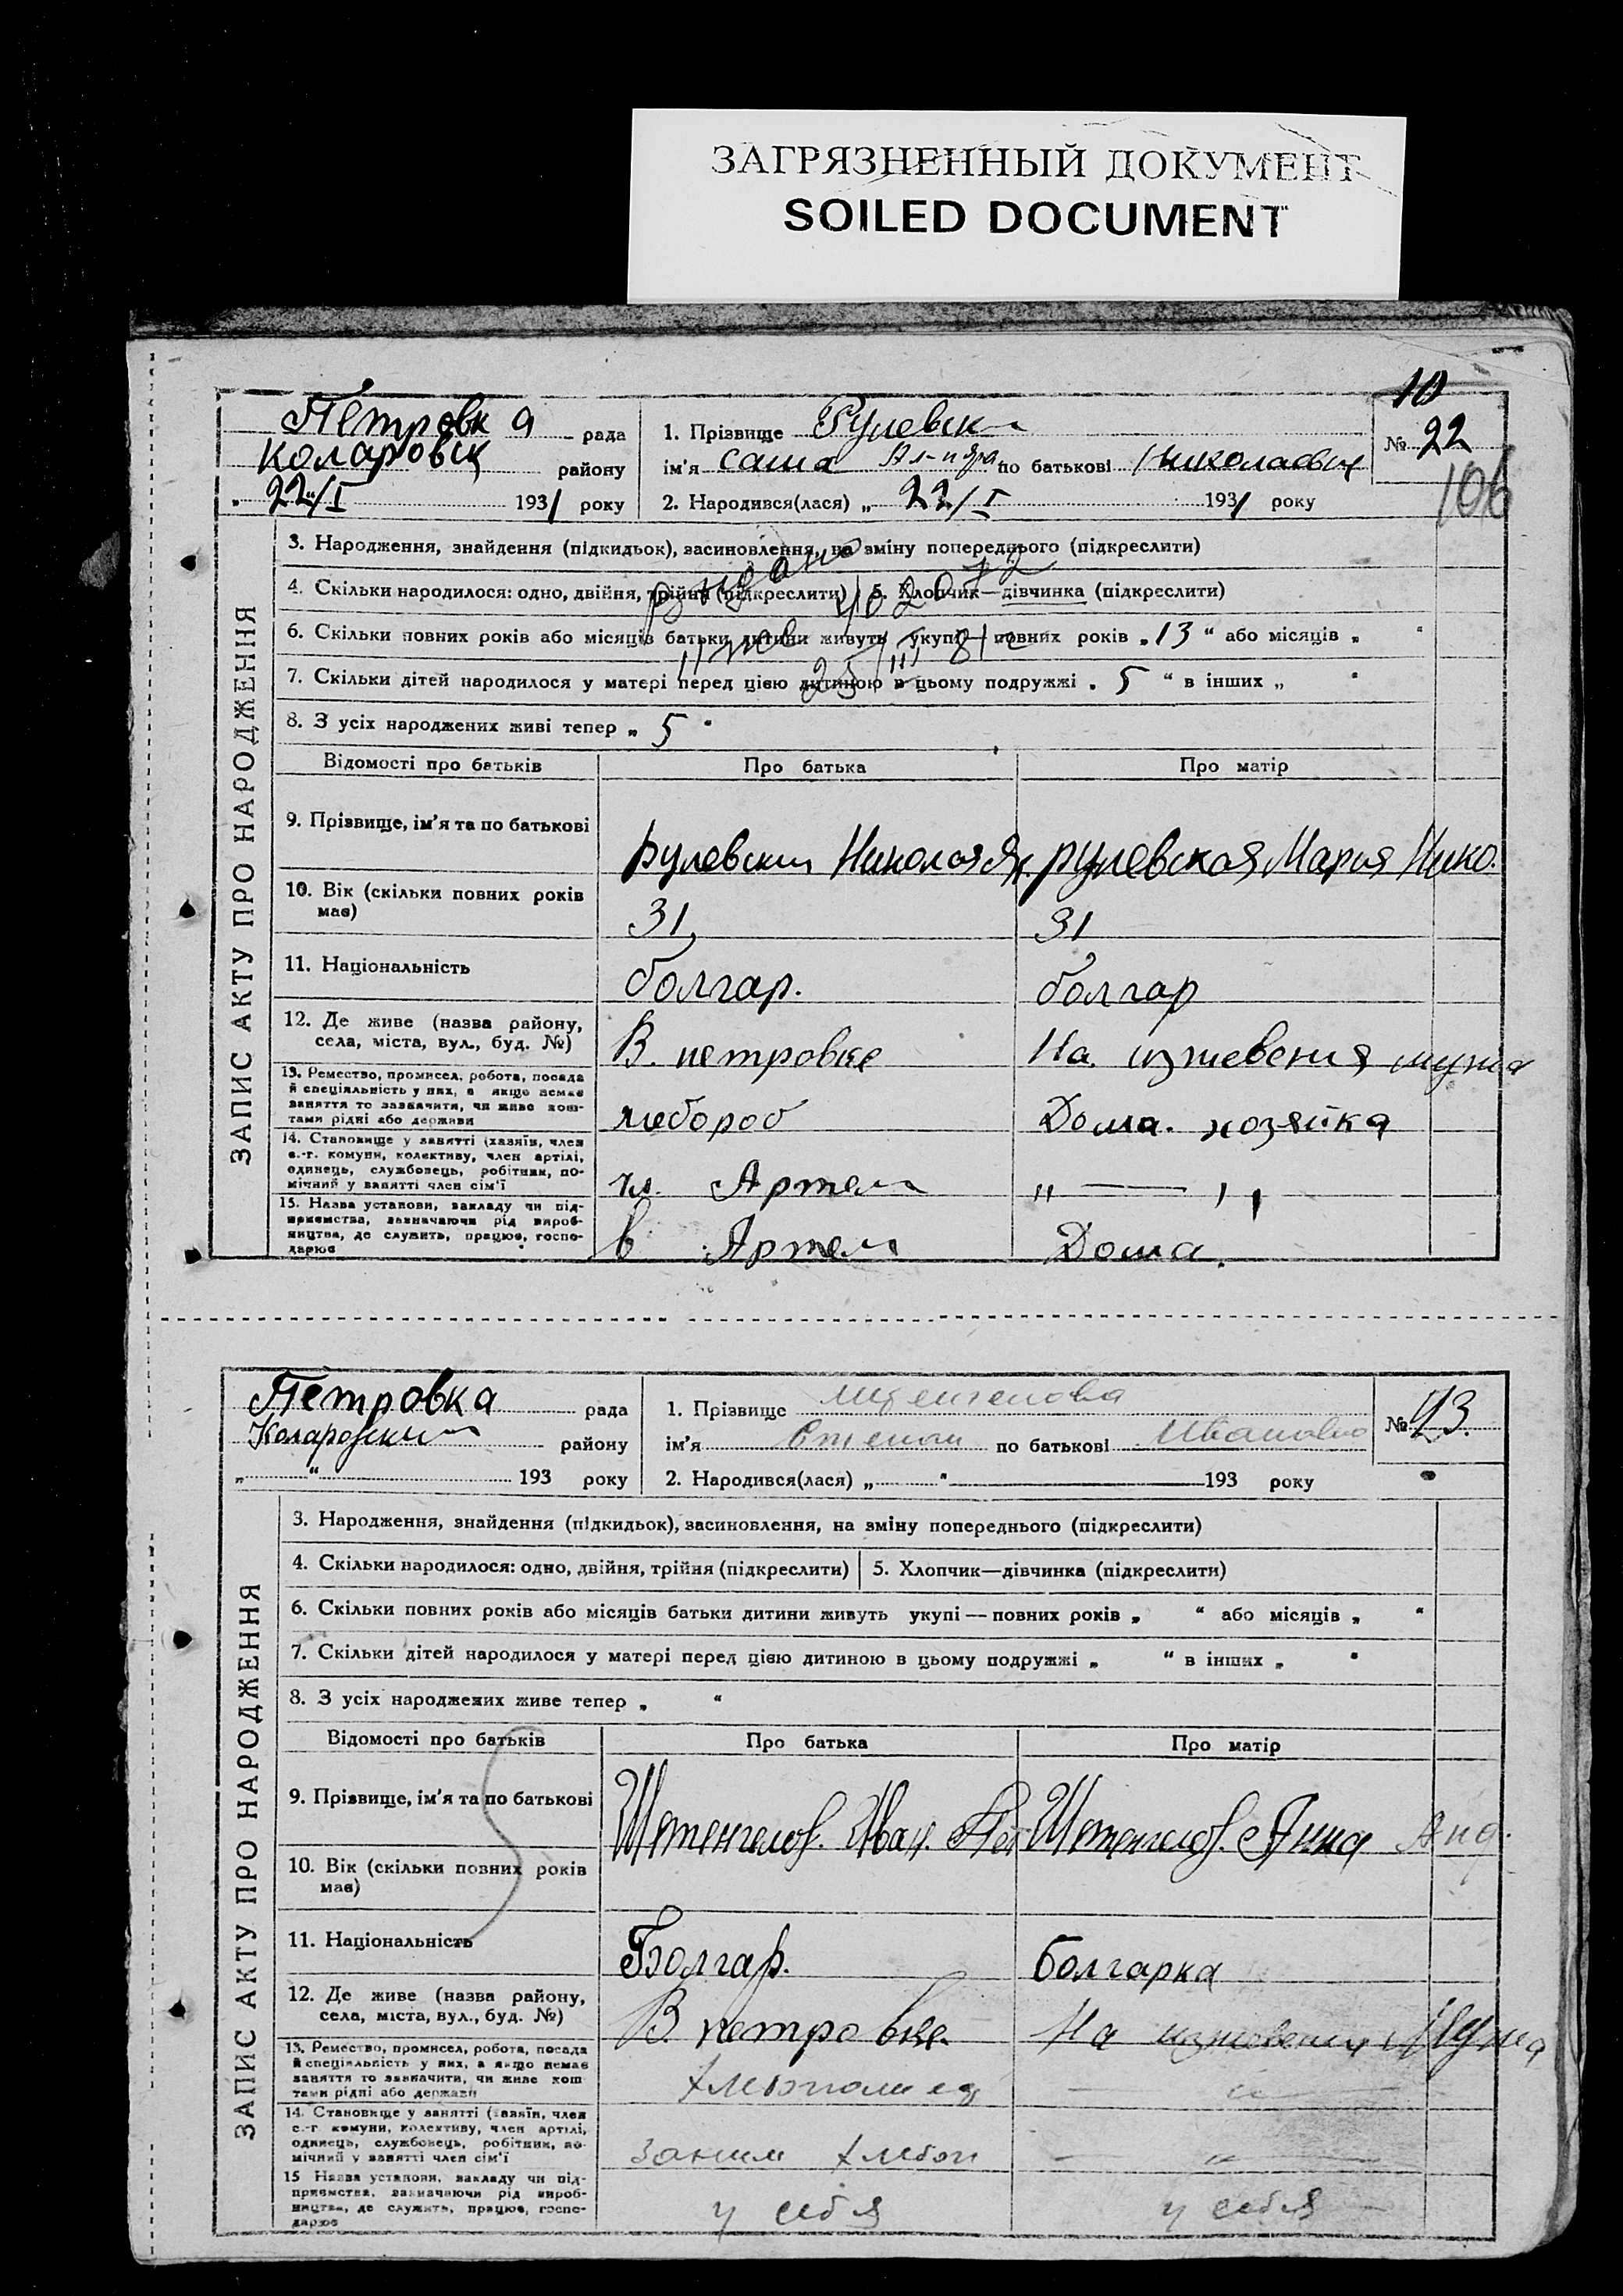 ЗАГРЯЗНЕННЫЙ ДОКУМЕНТ
SOILED DOCUMENT
10
Петровка рада
1. Прізвище Рулевски
№ 22
Коларовск району
ім'я Саша по батькові Николаевич
106
„ 22/I 1931 року
2. Народився(лася) „ 22/I 1931 року
ЗАПИС АКТУ ПРО НАРОДЖЕННЯ
3. Народження, знайдення (підкидьок), засиновлення, на зміну попереднього (підкреслити)
4. Скільки народилося: одно, двійня, трійня (підкреслити) 5. Хлопчик—дівчинка (підкреслити)
6. Скільки повних років або місяців батьки дитини живуть укупі—повних років „ 13 “ або місяців „ “
7. Скільки дітей народилося у матері перед цією дитиною в цьому подружжі „ 5 “ в інших „ “
8. З усіх народжених живі тепер „ 5 “
Відомості про батьків Про батька Про матір
9. Прізвище, ім'я та по батькові
Рулевски Николай Як. Рулевская Мария Нико.
10. Вік (скільки повних років має)
31 31
11. Національність
болгар. болгар
12. Де живе (назва району, села, міста, вул., буд. №)
В. петровке На мужа
13. Ремество, промисел, робота, посада й спеціяльність у них, а якщо немає заняття то зазначити, чи живе коштами рідні або держави
хлебороб Дома. хозяйка
14. Становище у занятті (хазяїн, член с.-г. комуни, колективу, член артілі, одинець, службовець, робітник, помічний у занятті член сім'ї
чл. Артели „ — „
15. Назва установи, закладу чи підприємства, зазначаючи рід виробництва, де служить, працює, господарює
в Артели Дома.
Петровка рада
1. Прізвище
№ 23.
Коларовски району
ім'я Степан по батькові Иванович
„ “ 193 року
2. Народився(лася) „ “ 193 року
ЗАПИС АКТУ ПРО НАРОДЖЕННЯ
3. Народження, знайдення (підкидьок), засиновлення, на зміну попереднього (підкреслити)
4. Скільки народилося: одно, двійня, трійня (підкреслити) 5. Хлопчик—дівчинка (підкреслити)
6. Скільки повних років або місяців батьки дитини живуть укупі—повних років „ “ або місяців „ “
7. Скільки дітей народилося у матері перед цією дитиною в цьому подружжі „ “ в інших „ “
8. З усіх народжених живе тепер „ “
Відомості про батьків Про батька Про матір
9. Прізвище, ім'я та по батькові
Штенгелов. Иван. Пет Штенгелов. Анна Анд.
10. Вік (скільки повних років має)
11. Національність
Болгар. Болгарка
12. Де живе (назва району, села, міста, вул., буд. №)
В. петровке На мужа
13. Ремество, промисел, робота, посада й спеціяльність у них, а якщо немає заняття то зазначити, чи живе коштами рідні або держави
— „ —
14. Становище у занятті (хазяїн, член с.-г. комуни, колективу, член артілі, одинець, службовець, робітник, помічний у занятті член сім'ї
— „ —
15 Назва установи, закладу чи підприємства, зазначаючи рід виробництва, де служить, працює, господарює
у себя у себя